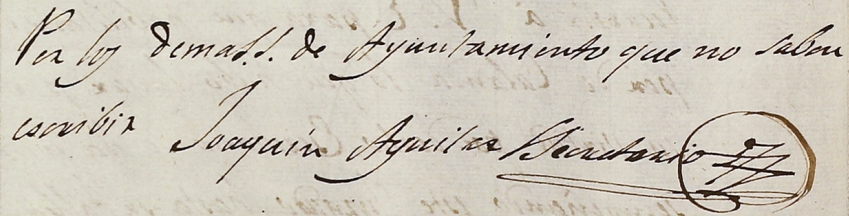 Por los demas S.S. de Ayuntamiento que no saben
escribir Joaquin Aguilar Secretario